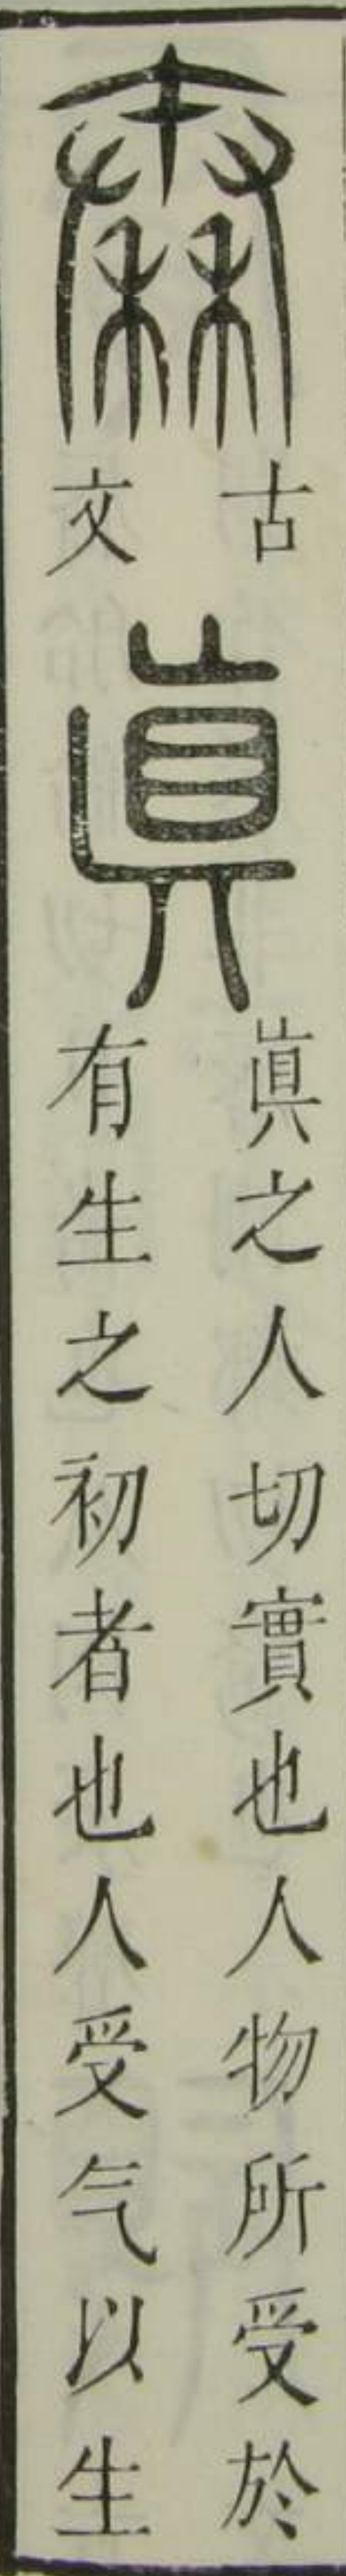 古
文
眞
眞之人切實也人物所受於
有生之初者也人受气以生